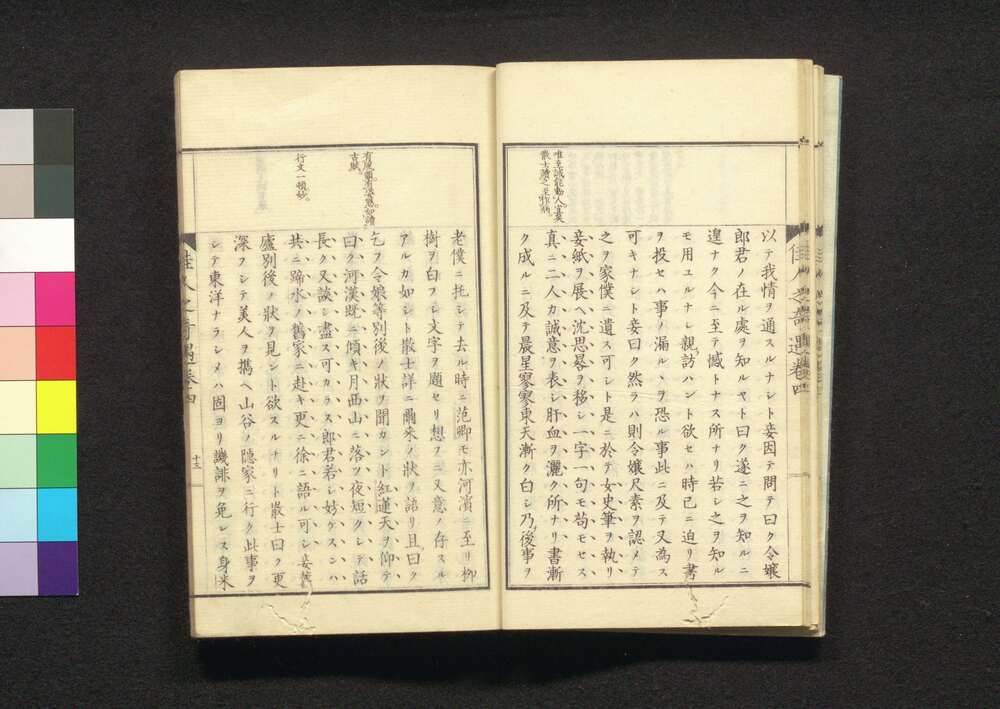 唯至誠能動人宜矣
散士讀之至作病
以テ我情ヲ通スルナシト妾因テ問テ曰ク令孃
郎君ノ在ル處ヲ知ルヤト曰ク遂ニ之ヲ知ルニ
遑ナク今ニ至テ憾トナス所ナリ若シ之ヲ知ル
モ用ユルナシ親訪ハント欲セハ時已ニ迫リ書
ヲ投セハ事ノ漏ルヽヲ恐ル事此ニ及テ又為ス
可キナシト妾曰ク然ラハ則令孃尺素ヲ認メテ
之ヲ家僕ニ遺ス可シト是ニ於テ女史筆ヲ執リ
妾紙ヲ展ヘ沈思晷ヲ移シ一字一句モ苟モセス
真ニ二人カ誠意ヲ表シ肝血ヲ灑ク所ナリ書漸
ク成ルニ及テ晨星寥寥東天漸ク白シ乃後事ヲ
佳人之奇遇卷四
古賦
行文一頓妙。
老僕ニ托シテ去ル時ニ范卿モ亦河濱ニ至リ柳
樹ヲ白フシ文字ヲ題セリ想フニ又意ノ存スル
アルカ如シト散士詳ニ爾来ノ狀ヲ語リ且曰ク
乞フ令娘等別後ノ狀ヲ聞カント紅蓮天ヲ仰テ
曰ク河漢既ニ傾キ月西山ニ落ツ夜短クシテ話
長ク又談シ盡ス可カラス郎君若シ妨ケスンハ
共ニ蹄水ノ舊家ニ赴キ更ニ徐ニ語ル可シ妾舊
廬別後ノ狀ヲ見ント欲スルナリト散士曰ク更
深フシテ美人ヲ携ヘ山谷ノ隱家ニ行ク此事ヲ
シテ東洋ナラシメハ固ヨリ譏誹ヲ免レス身米
佳人之奇遇卷四
十三